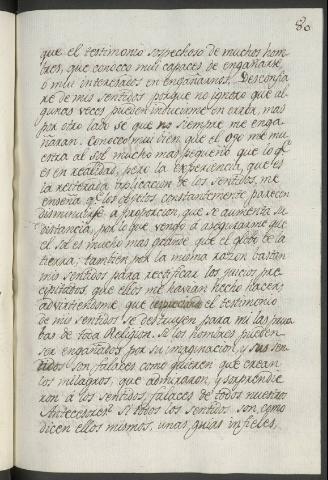 80
que el testimonio sospechoso de muchos hom-
bres, que conosco mui capaces de engañarse,
o mui interesados en engañarnos. Desconfia
re de mis sentidos porque no ignoro que al-
gunas veces pueden inducirme en error, mas
por otro lado se que no siempre me enga-
ñaran. Conosco mui bien que el ojo me mu-
estra al Sol mucho mas pequeño que lo qe
es en realidad, pero la experiencia, que es
la reiterada aplicacion de los sentidos, me
enseña qe los objetos constantemente parecen
disminuirse a proporcion, que se aumenta su
distancia, por lo que vengo a asegurarme que
el Sol es mucho mas grande que el globo de la
tierra; tambien por la misma razon bastan
mis sentidos para rectificar los juicios pre-
cipitados que ellos me havian hecho hacer.
advirtiendome que el testimonio
de mis sentidos se destruyen para mi las prue
bas de toda Religion. Si los hombres pueden
ser engañados por su imaginacion, y sus sen-
tidos son falaces como quieren que crean
los milagros, que admiraron, y sorprendie
ron a los sentidos falaces de todos nuestros
Antecesores? Si todos los sentidos son, como
dicen ellos mismos, unas guias infieles,